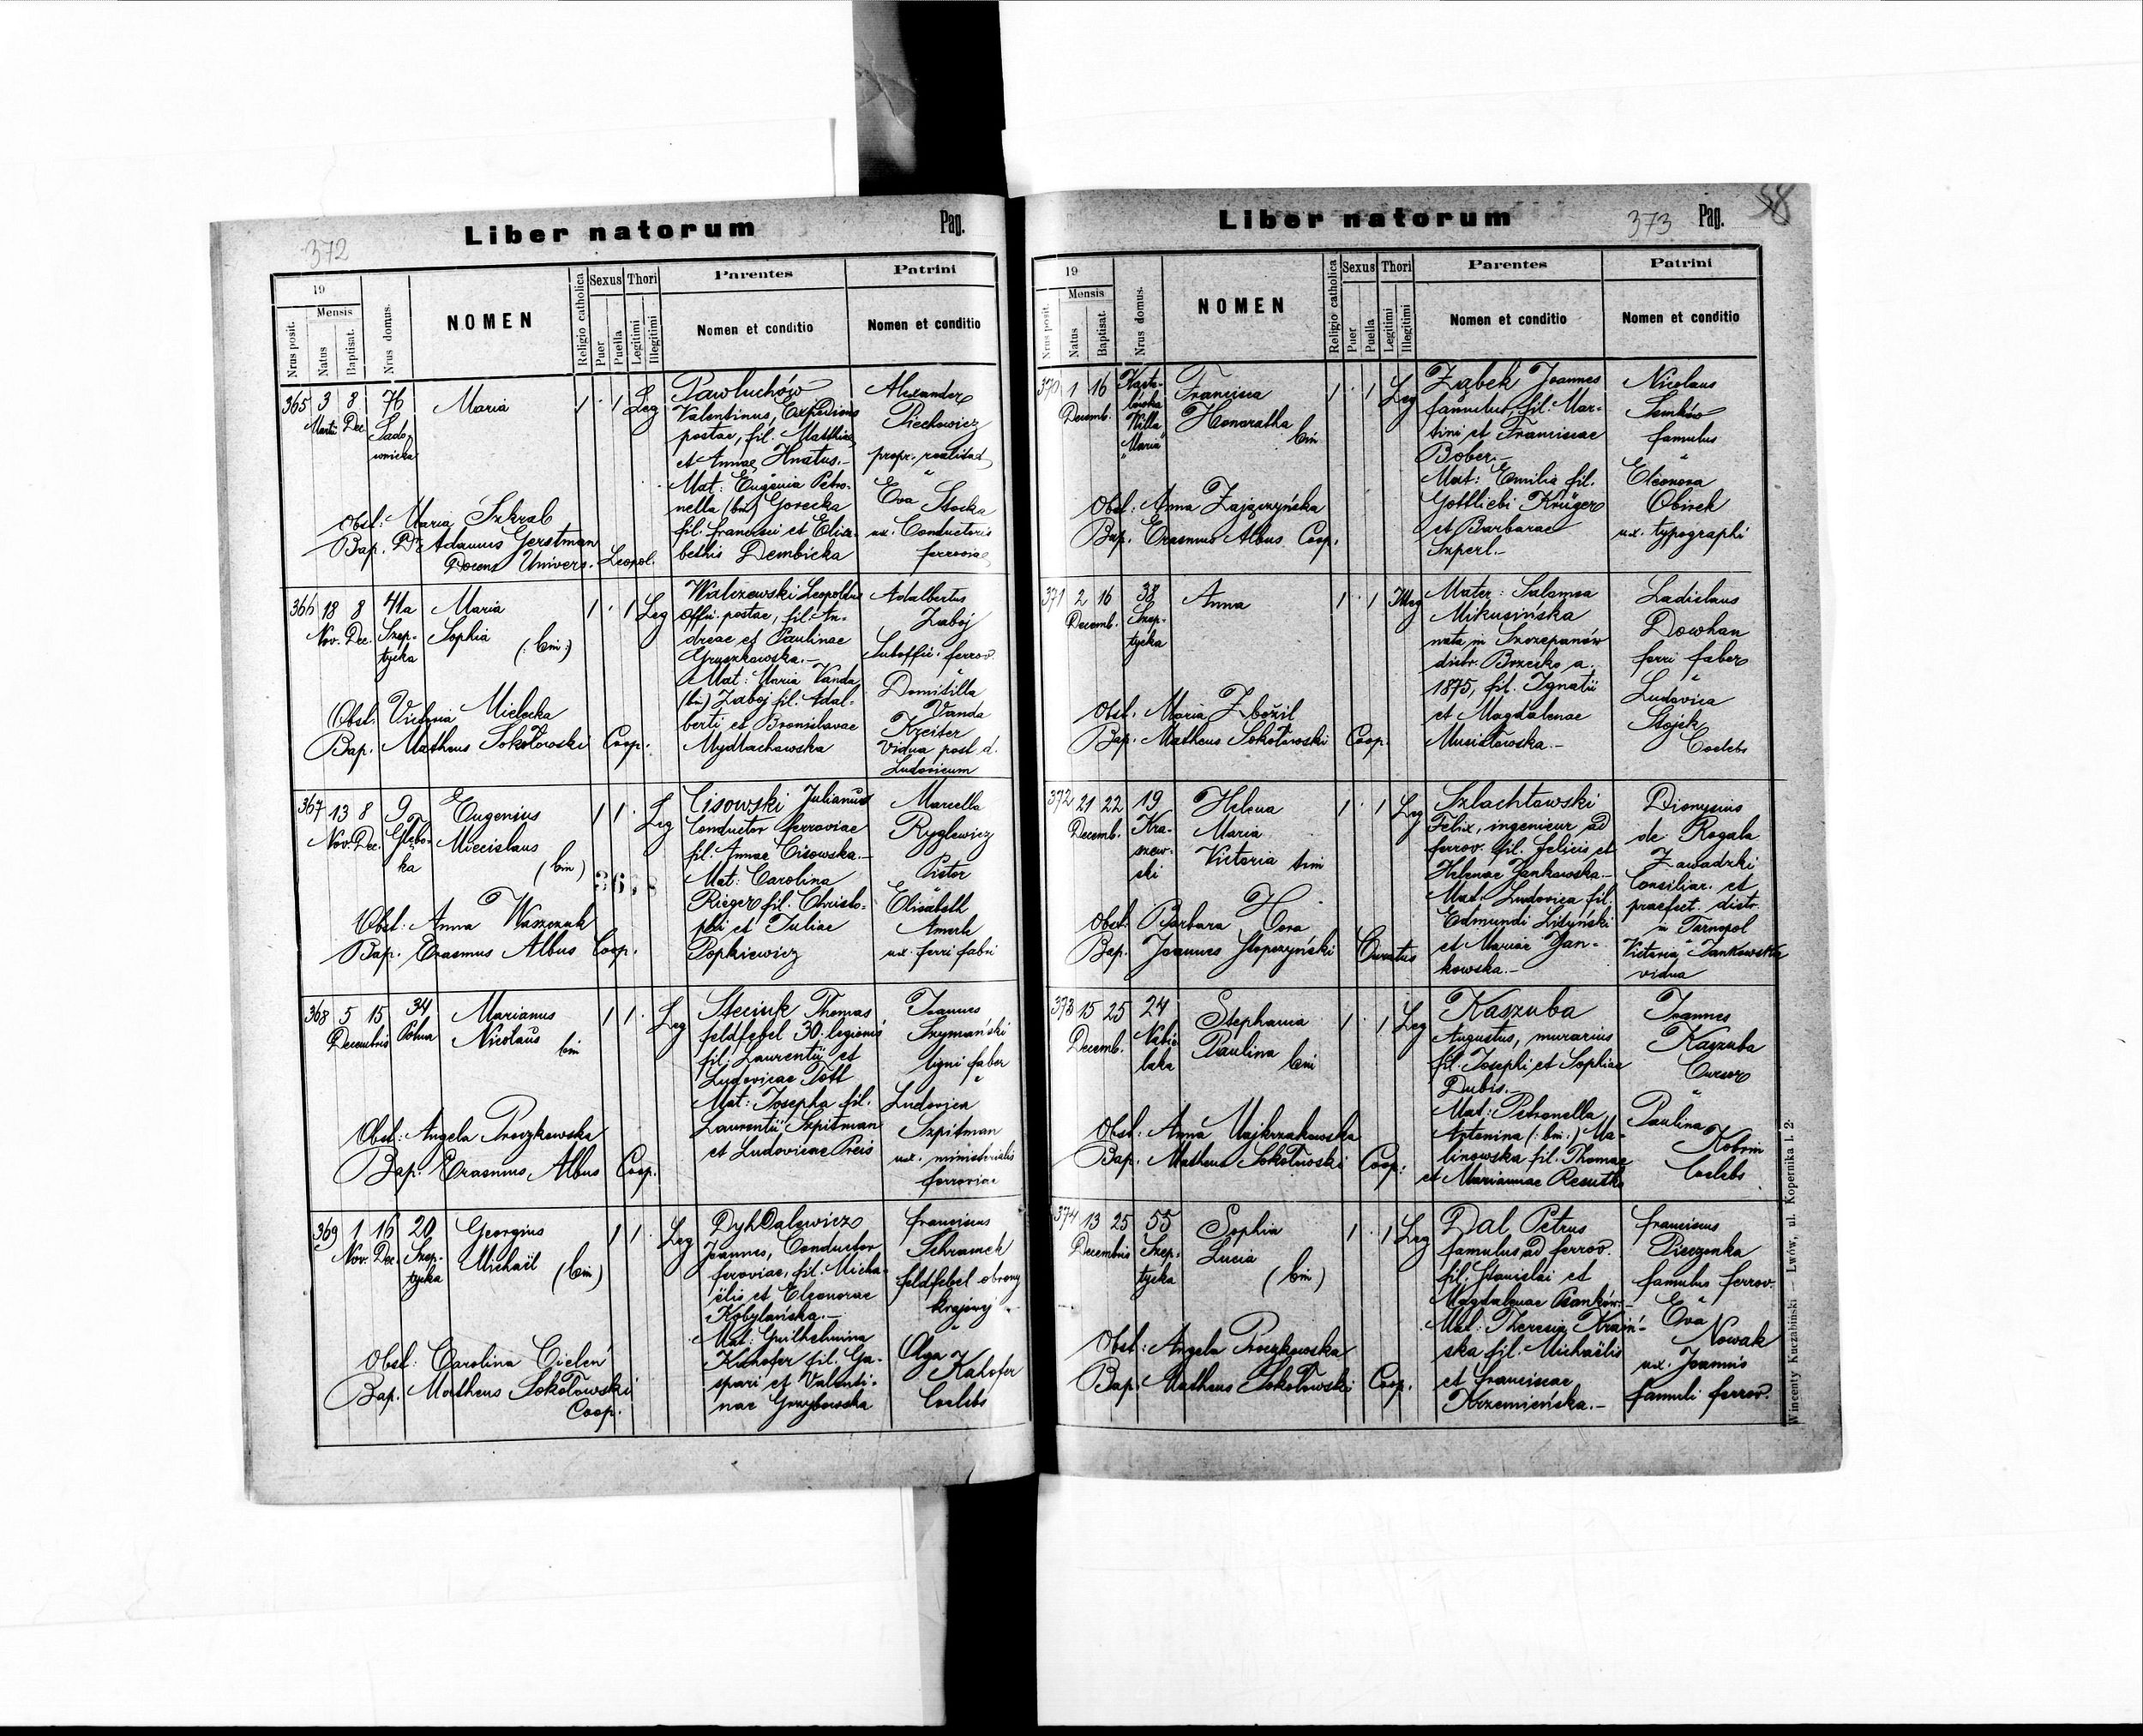 372
Liber natorum Pag.
19
Mensis
Nrus posit.
Natus
Baptisat.
Nrus domus.
NOMEN
Religio catholica
Sexus
Puer
Puella
Thori
Legitimi
Illegitimi
Parentes
Nomen et conditio
Patrini
Nomen et conditio
365 3 8 76 Maria 1 · 1 Leg
Martii Dec. Sado
wnicka
Pawluchów
Valentinus, Expediens
postae, fil. Matthiae
et Annae Hnatus.-
Mat: Eugenia Petro-
nella (bin) Gorecka
fil. Francisci et Elisa-
bethis Dembicka
Alexander
Piechowicz
propr. realitat.
Eva Stoska
ux. Conductoris
ferroviae
Obst: Maria Szkrab
Bap. Dr. Adamus Gerstman
Docens Univers. Leopol.
366 18 8 41a Maria 1 · 1 Leg
Nov. Dec. Szep-
tycka
Sophia (: bin :)
Walczewski Leopoldus
Offic. postae, fil. An-
dreae et Paulinae
Gruszkowska.-
Mat: Maria Vanda
(bin) Zaboj fil. Adal-
berti et Bronislavae
Mydlachowska
Adalbertus
Zaboj
Suboffic. ferrov.
Domitilla
Vanda
Kreiter
vidua post d.
Ludovicum
Obst. Victoria Mielecka
Bap. Matheus Sokołowski Coop.
367 13 8 9 Eugenius 1 1 · Leg
Nov. Dec. Głębo-
ka
Miecislaus
(bin)
Cisowski Julianus
Conductor ferroviae
fil. Annae Cisowska.-
Mat: Carolina
Rieger fil. Christo-
phi et Juliae
Popkiewicz
Marcella
Ryglewicz
Pistor
Elisabeth
ux. ferri fabri
Obst: Anna Waszczuk
Bap. Erasmus Albus Coop.
368 5 15 34 Marianus 1 1 · Leg
Decembris Polna
Nicolaus bin
Steciuk Thomas
feldfebel 30. legionis
fil. Laurentii et
Ludovicae Tott
Mat: Josepha fil.
Laurentii Szpitman
et Ludovicae Preis
Joannes
Szymański
ligni faber
Ludovica
Szpitman
ux. ministerialis
ferroviae
Obst: Angela Proczkowska
Bap: Erasmus Albus Coop.
369 1 16 20 Georgius 1 1 · Leg
Nov. Dec. Szep-
tycka
Michaël (bin)
DyhDalewicz
Joannes, Conductor
ferroviae, fil. Micha-
ëlis et Eleonorae
Kobylańska.-
Mat: Guilhelmina
Kahofer fil. Ga-
spari et Valenti-
nae Grzybowska
Franciscus
Schramek
feldfebel obrony
krajowej
Olga
Kahofer
Coelebs
Obst: Carolina Cieleń
Bap. Matheus Sokołowski
Coop.
Liber natorum 373 Pag. 58
19
Mensis
Nrus posit.
Natus
Baptisat.
Nrus domus.
NOMEN
Religio catholica
Sexus
Puer
Puella
Thori
Legitimi
Illegitimi
Parentes
Nomen et conditio
Patrini
Nomen et conditio
370 1 16 Francisca 1 · 1 Leg
Decemb. Willa
"Maria"
Honoratha
bin
Ząbek Joannes
famulus, fil. Mar-
tini et Franciscae
Bober.-
Mat: Emilia fil.
Gottliebi Krüger
et Barbarae
Szperl.-
Nicolaus
Semków
famulus
Eleonora
Obirek
ux. typographi
Obst. Anna Zajączyńska
Bap. Erasmus Albus Coop.
371 2 16 38 Anna 1 · 1 Illeg
Decemb. Szep-
tycka
Mater: Salomea
Mikusińska
nata in Szczepanów
distr. Brzesko a.
1875, fil. Ignatii
et Magdalenae
Musiałowska.-
Ladislaus
Dowhan
ferri faber
Ludovica
Stojek
Coelebs
Obst. Maria Zbožil
Bap. Matheus Sokołowski Coop.
372 21 22 19 Helena 1 · 1 Leg
Decemb. Kra-
szew-
ski
Maria
Victoria trin
Szlachtowski
Felix, ingenieur ad
ferrov. fil. Felicis et
Helenae Jankowska.-
Mat. Ludovica fil.
Edmundi Lityński
et Mariae Jan-
kowska.-
Dionysius
de Rogala
Zawadzki
Consiliar. et
praefect. distr.
in Tarnopol
Victoria Jankowska
vidua
Obst: Barbara Hora
Bap. Joannes Stopczyński Curatus
373 15 25 24 Stephania 1 · 1 Leg
Decemb. Nabie
laka
Paulina bin
Kaszuba
Augustus, murarius
fil. Josephi et Sophiae
Dubis.
Mat: Petronella
Antonina (: bin :) Ma-
linowska fil. Thomae
et Mariannae Resutko
Joannes
Kaszuba
Cursor
Paulina
Kobrin
Coelebs
Obst: Anna Majkrzakowska
Bap. Matheus Sokołowski Coop.
374 13 25 55 Sophia 1 · 1 Leg
Decembris Szep-
tycka
Lucia
(bin)
Dal Petrus
famulus ad ferrov.
fil. Stanislai et
Magdalenae Pianków.-
Mat: Theresia Kraiń-
ska fil. Michaëlis
et Franciscae
Krzemieńska.-
Franciscus
Pieczonka
famulus ferrov.
Eva
Nowak
ux. Joannis
famuli ferrov.
Obst: Angela Proczkowska
Bap. Matheus Sokołowski Coop.
Wincenty Kuczabiński — Lwów, ul. Kopernika l. 2.